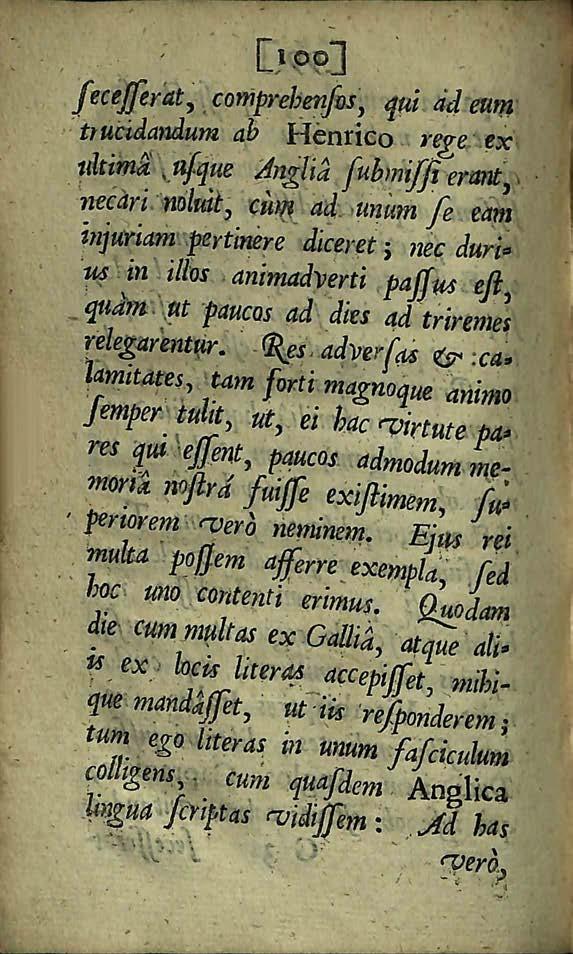 [100]
ſeceſſerat, comprehenſos, qui ad eum
trucidandum ab Henrico rege ex
ultimâ uſque Angliâ ſubmiſſierant,
necari noluit, cùm ad unum ſe eam
injuriam pertinere diceret; nec duri-
us in illos animadverti paſſus eſt,
quàm ut paucos ad dies ad triremes
relegarentur. Res adverſas & ca-
lamitates, tam forti magnoque animo
ſemper tulit, ut, ei hac virtute pa-
res qui eſſent, paucos admodum me-
moriâ noſtrá fuiſſe exiſtimem, ſu-
periorem verò neminem. Ejus rei
multa poſſem afferre exempla, ſed
hoc uno contenti erimus. Quodam
die cum multas ex Galliâ, atque ali-
is ex locis literas accepiſſet, mihi-
que mandâſſet, ut iis reſponderem;
tum ego literas in unum faſciculum
colligens, cum quaſdem Anglica
lingua ſcriptas vidiſſem: Ad has
verò,